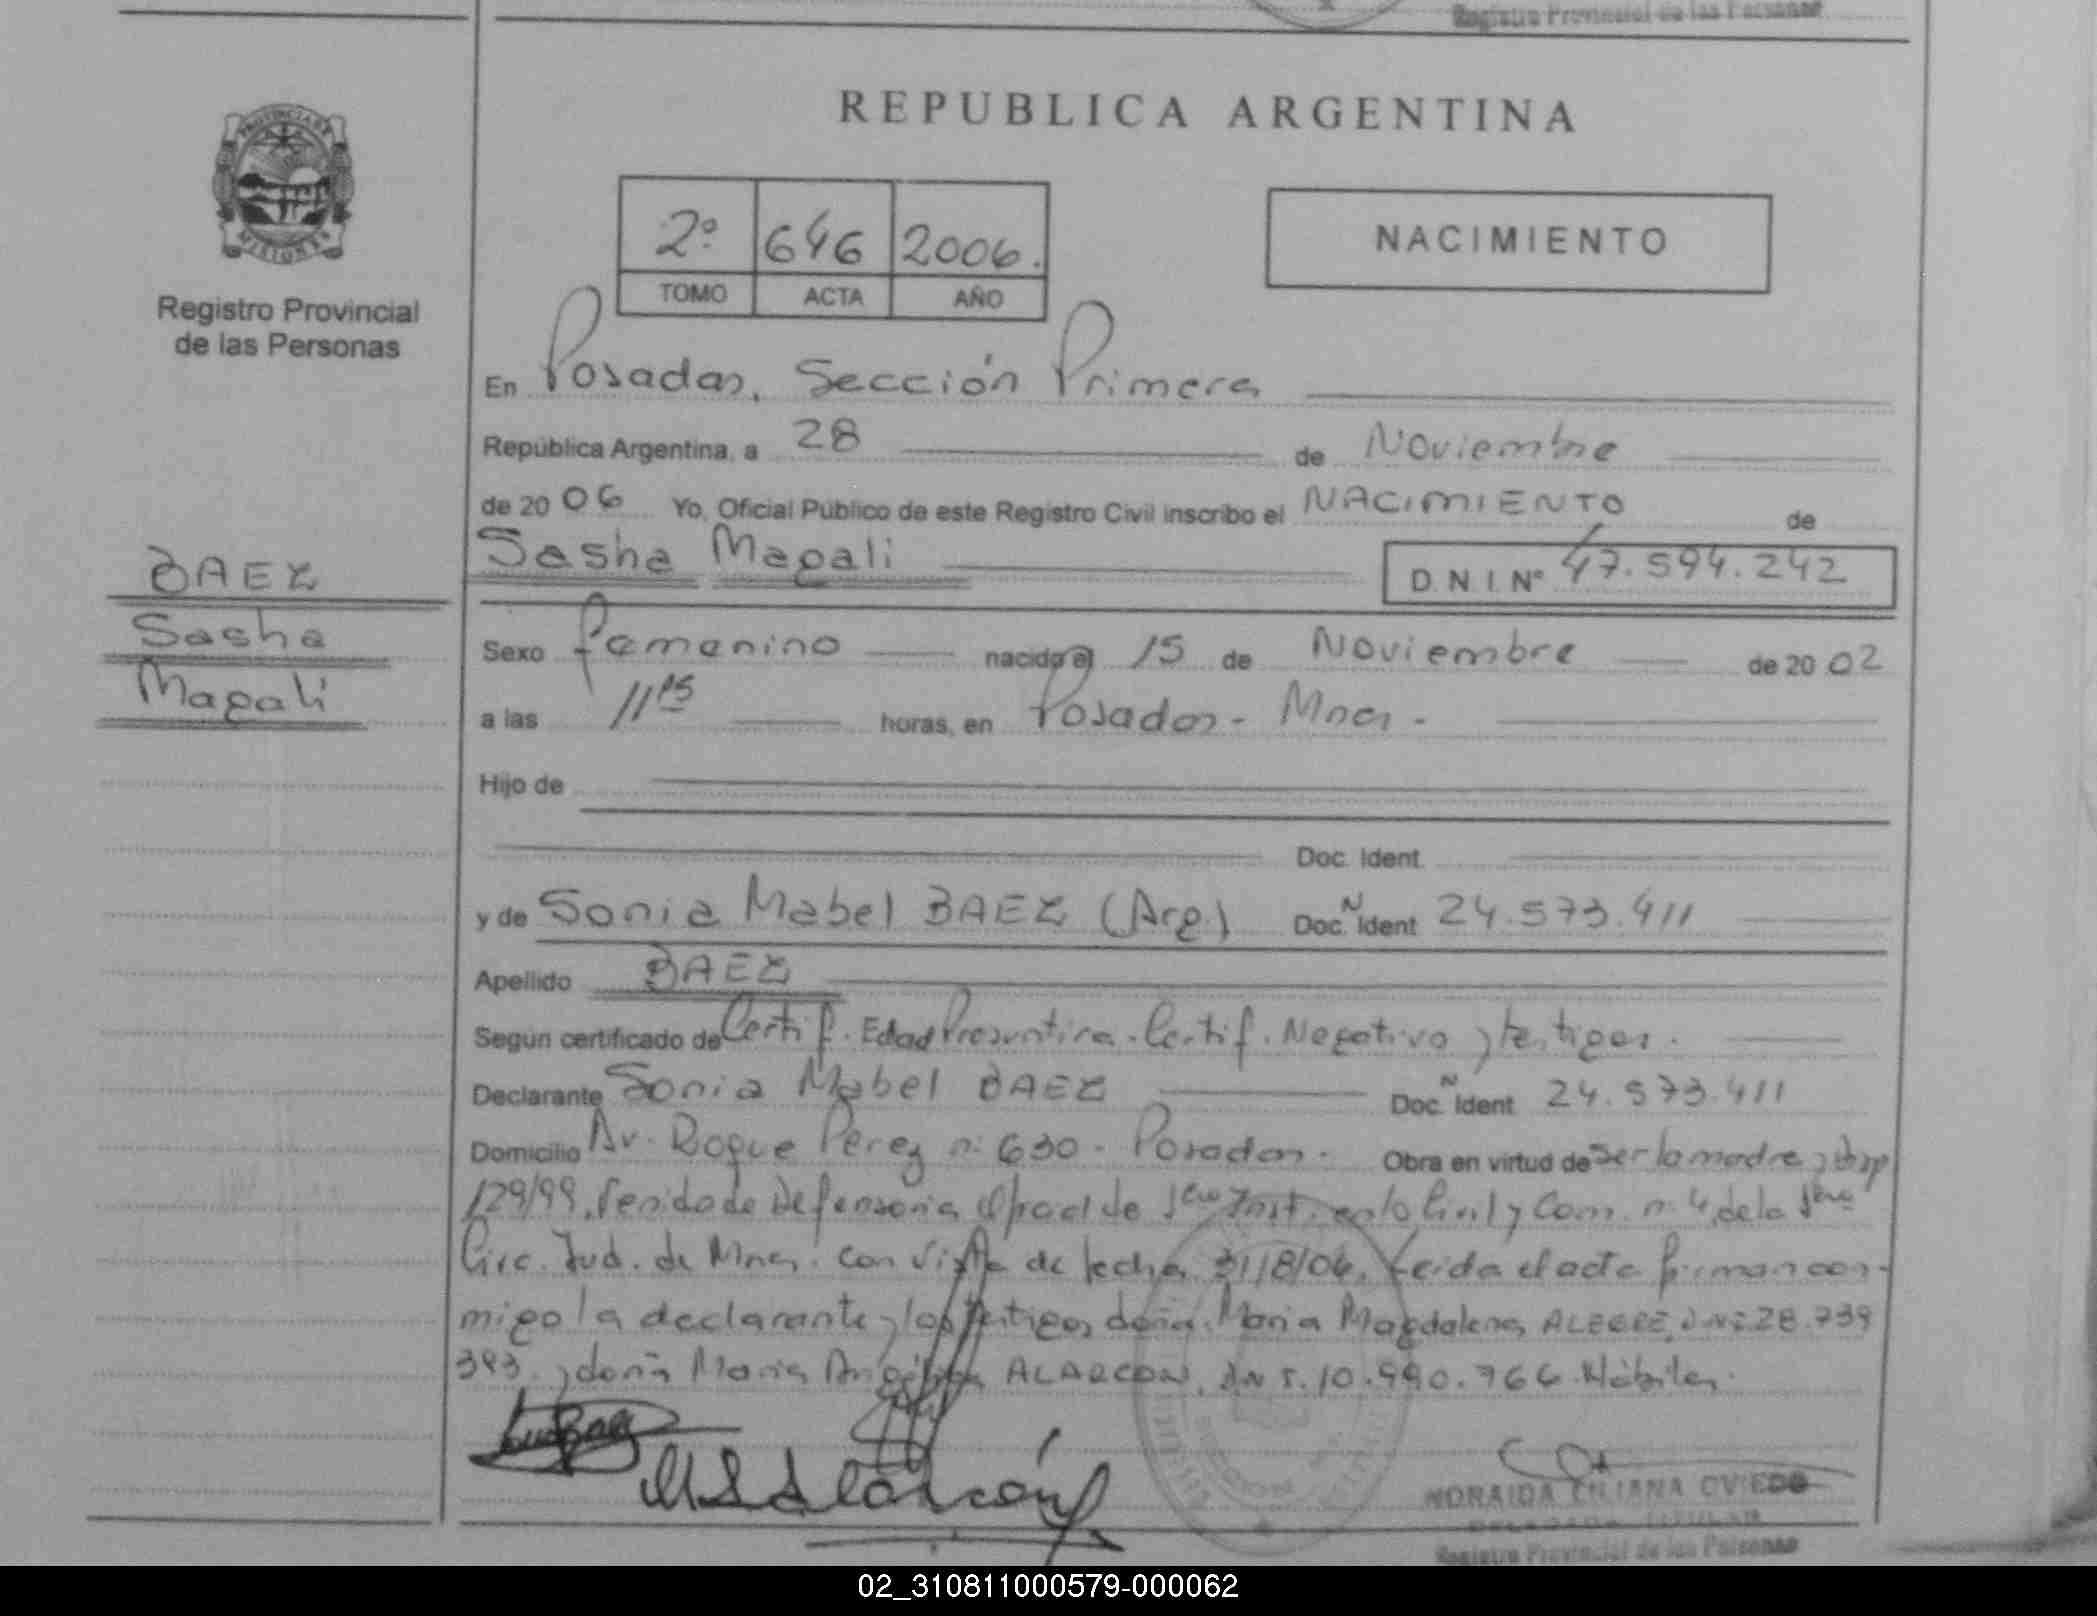 Registro Provincial de las Personas
REPUBLICA ARGENTINA
PROVINCIA DE
MISIONES
Registro Provincial
de las Personas
2º 646 2006.
TOMO ACTA AÑO
NACIMIENTO
En Posadas, Sección Primera
República Argentina, a 28 de Noviembre
de 20 06 Yo, Oficial Público de este Registro Civil inscribo el NACIMIENTO de
Sasha Magali D.N.I. Nº 47.594.242
BAEZ
Sasha
Magali
Sexo femenino nacida el 15 de Noviembre de 20 02
a las 11 15 horas, en Posadas - Mnes -
Hijo de
Doc. Ident.
y de Sonia Mabel BAEZ (Arg.) Doc. N Ident 24.573.411
Apellido BAEZ
Según certificado de Certif. Edad Presuntiva. Certif. Negativo y testigos.
Declarante Sonia Mabel BAEZ Doc. N Ident 24.573.411
Domicilio Av. Roque Perez nº 630 - Posadas. Obra en virtud de ser la madre y
129/99, de Defensoria Oficial de 1era Inst. en lo Civil y Com. nº 4, de la 1era
Circ. Jud. de Mnes. con vista de fecha 31/8/06, Leida el acta firman con-
migo la declarante y los testigos doña Maria Magdalena ALEGRE, DNI 28.739
393. y doña Maria Angélica ALARCON, DNI. 10.990.766 Hábiles.
NORAIDA LILIANA OVIEDO
DELEGADA TITULAR
Registro Provincial de las Personas
02_310811000579-000062